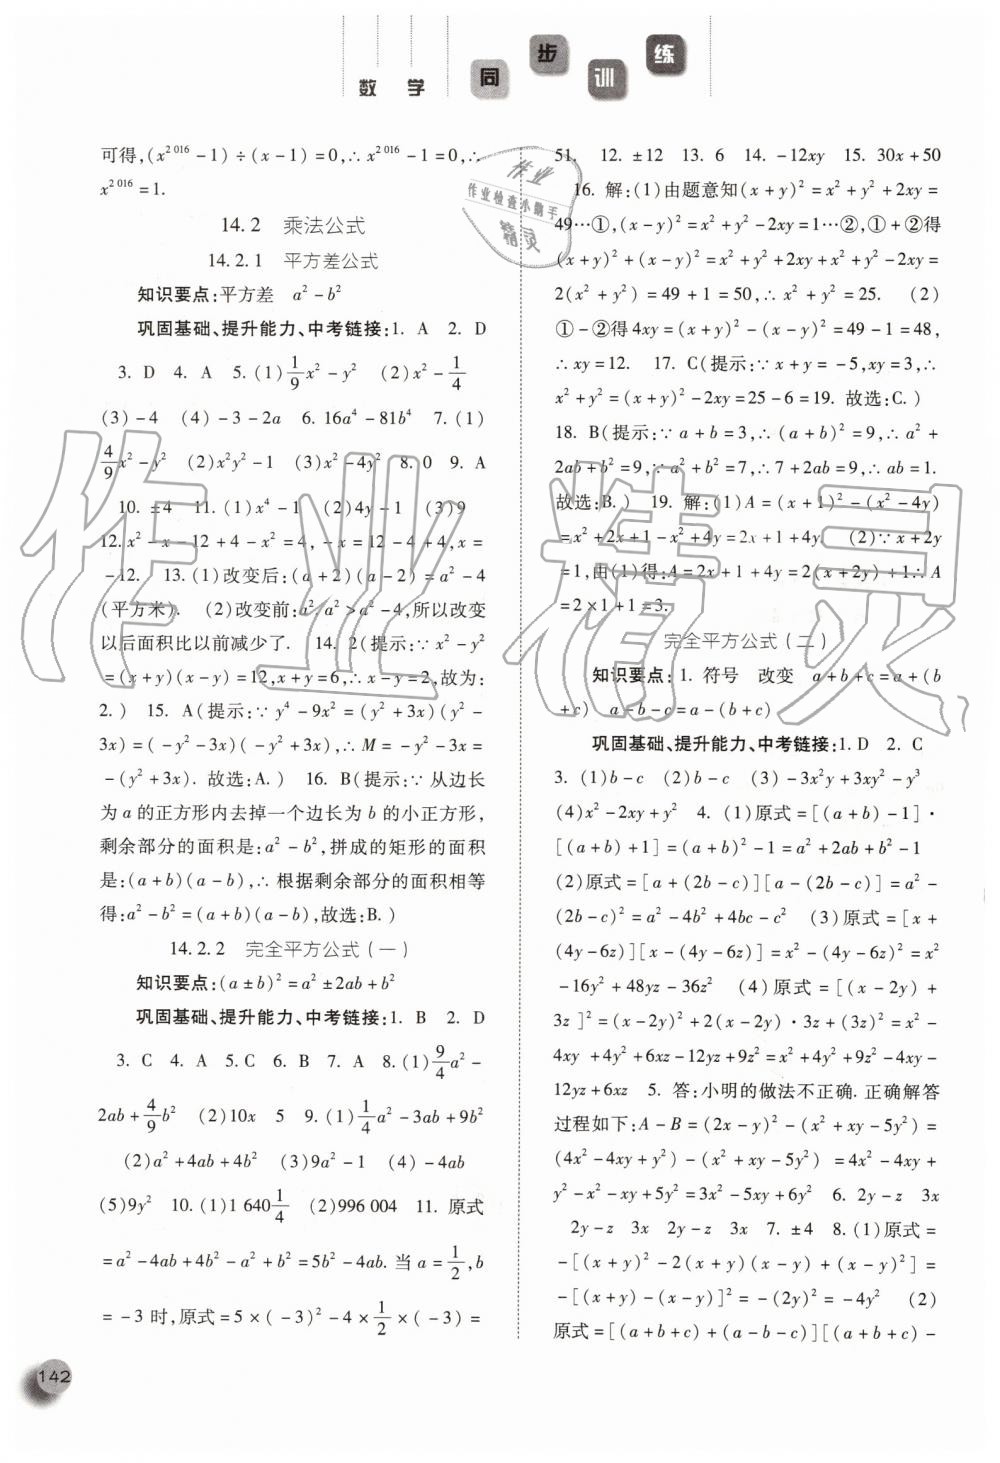 数 学 同 步 训 练
可得,(x^2 016 - 1) ÷ (x - 1) = 0,∴ x^2 016 - 1 = 0,∴
x^2 016 = 1.
14.2 乘法公式
14.2.1 平方差公式
知识要点:平方差 a² - b²
巩固基础、提升能力、中考链接:1. A 2. D
3. D 4. A 5. (1) 1/9 x² - y² (2)x² - 1/4
(3) - 4 (4) - 3 - 2a 6. 16a⁴ - 81b⁴ 7. (1)
4/9 x² - y² (2)x²y² - 1 (3)x² - 4y² 8. 0 9. A
10. ±4 11. (1)x⁴ - 1 (2)4y - 1 (3)9
12. x² - x - 12 + 4 - x² = 4, - x = 12 - 4 + 4,x =
- 12. 13. (1)改变后:(a + 2)(a - 2) = a² - 4
(平方米). (2)改变前:a²,a² > a² - 4,所以改变
以后面积比以前减少了. 14. 2(提示:∵ x² - y²
= (x + y)(x - y) = 12,x + y = 6,∴ x - y = 2,故为:
2.) 15. A(提示:∵ y⁴ - 9x² = (y² + 3x)(y² -
3x) = ( - y² - 3x)( - y² + 3x),∴ M = - y² - 3x =
- (y² + 3x). 故选:A.) 16. B(提示:∵ 从边长
为 a 的正方形内去掉一个边长为 b 的小正方形,
剩余部分的面积是:a² - b²,拼成的矩形的面积
是:(a + b)(a - b),∴ 根据剩余部分的面积相等
得:a² - b² = (a + b)(a - b),故选:B.)
14.2.2 完全平方公式(一)
知识要点:(a ± b)² = a² ± 2ab + b²
巩固基础、提升能力、中考链接:1. B 2. D
3. C 4. A 5. C 6. B 7. A 8. (1) 9/4 a² -
2ab + 4/9 b² (2)10x 5 9. (1) 1/4 a² - 3ab + 9b²
(2)a² + 4ab + 4b² (3)9a² - 1 (4) - 4ab
(5)9y² 10. (1)1 640 1/4 (2)996 004 11. 原式
= a² - 4ab + 4b² - a² + b² = 5b² - 4ab. 当 a = 1/2,b
= - 3 时,原式 = 5 × ( - 3)² - 4 × 1/2 × ( - 3) =
142
51. 12. ±12 13. 6 14. - 12xy 15. 30x + 50
16. 解:(1)由题意知(x + y)² = x² + y² + 2xy =
49…①,(x - y)² = x² + y² - 2xy = 1…②,① + ②得
(x + y)² + (x - y)² = x² + y² + 2xy + x² + y² - 2xy =
2(x² + y²) = 49 + 1 = 50,∴ x² + y² = 25. (2)
① - ②得 4xy = (x + y)² - (x - y)² = 49 - 1 = 48,
∴ xy = 12. 17. C(提示:∵ x + y = - 5,xy = 3,∴
x² + y² = (x + y)² - 2xy = 25 - 6 = 19. 故选:C.)
18. B(提示:∵ a + b = 3,∴ (a + b)² = 9,∴ a² +
2ab + b² = 9,∵ a² + b² = 7,∴ 7 + 2ab = 9,∴ ab = 1.
故选:B.) 19. 解:(1)A = (x + 1)² - (x² - 4y)
= x² + 2x + 1 - x² + 4y = 2x + 1 + 4y. (2)∵ x + 2y
= 1,由(1)得:A = 2x + 1 + 4y = 2(x + 2y) + 1∴ A
= 2 × 1 + 1 = 3.
完全平方公式(二)
知识要点:1. 符号 改变 a + b + c = a + (b
+ c) a - b - c = a - (b + c)
巩固基础、提升能力、中考链接:1. D 2. C
3. (1)b - c (2)b - c (3) - 3x²y + 3xy² - y³
(4)x² - 2xy + y² 4. (1)原式 = [(a + b) - 1]·
[(a + b) + 1] = (a + b)² - 1 = a² + 2ab + b² - 1
(2)原式 = [a + (2b - c)][a - (2b - c)] = a² -
(2b - c)² = a² - 4b² + 4bc - c² (3)原式 = [x +
(4y - 6z)][x - (4y - 6z)] = x² - (4y - 6z)² = x²
- 16y² + 48yz - 36z² (4)原式 = [(x - 2y) +
3z]² = (x - 2y)² + 2(x - 2y)·3z + (3z)² = x² -
4xy + 4y² + 6xz - 12yz + 9z² = x² + 4y² + 9z² - 4xy -
12yz + 6xz 5. 答:小明的做法不正确. 正确解答
过程如下:A - B = (2x - y)² - (x² + xy - 5y²) =
(4x² - 4xy + y²) - (x² + xy - 5y²) = 4x² - 4xy +
y² - x² - xy + 5y² = 3x² - 5xy + 6y² 6. 2y - z 3x
2y - z 3x 2y - z 3x 7. ±4 8. (1)原式 =
- [(x + y)² - 2(x + y)(x - y) + (x - y)²] =
- [(x + y) - (x - y)]² = - (2y)² = - 4y² (2)
原式 = [(a + b + c) + (a - b - c)][(a + b + c) -
作业
作业检查小助手
精灵
作业精灵